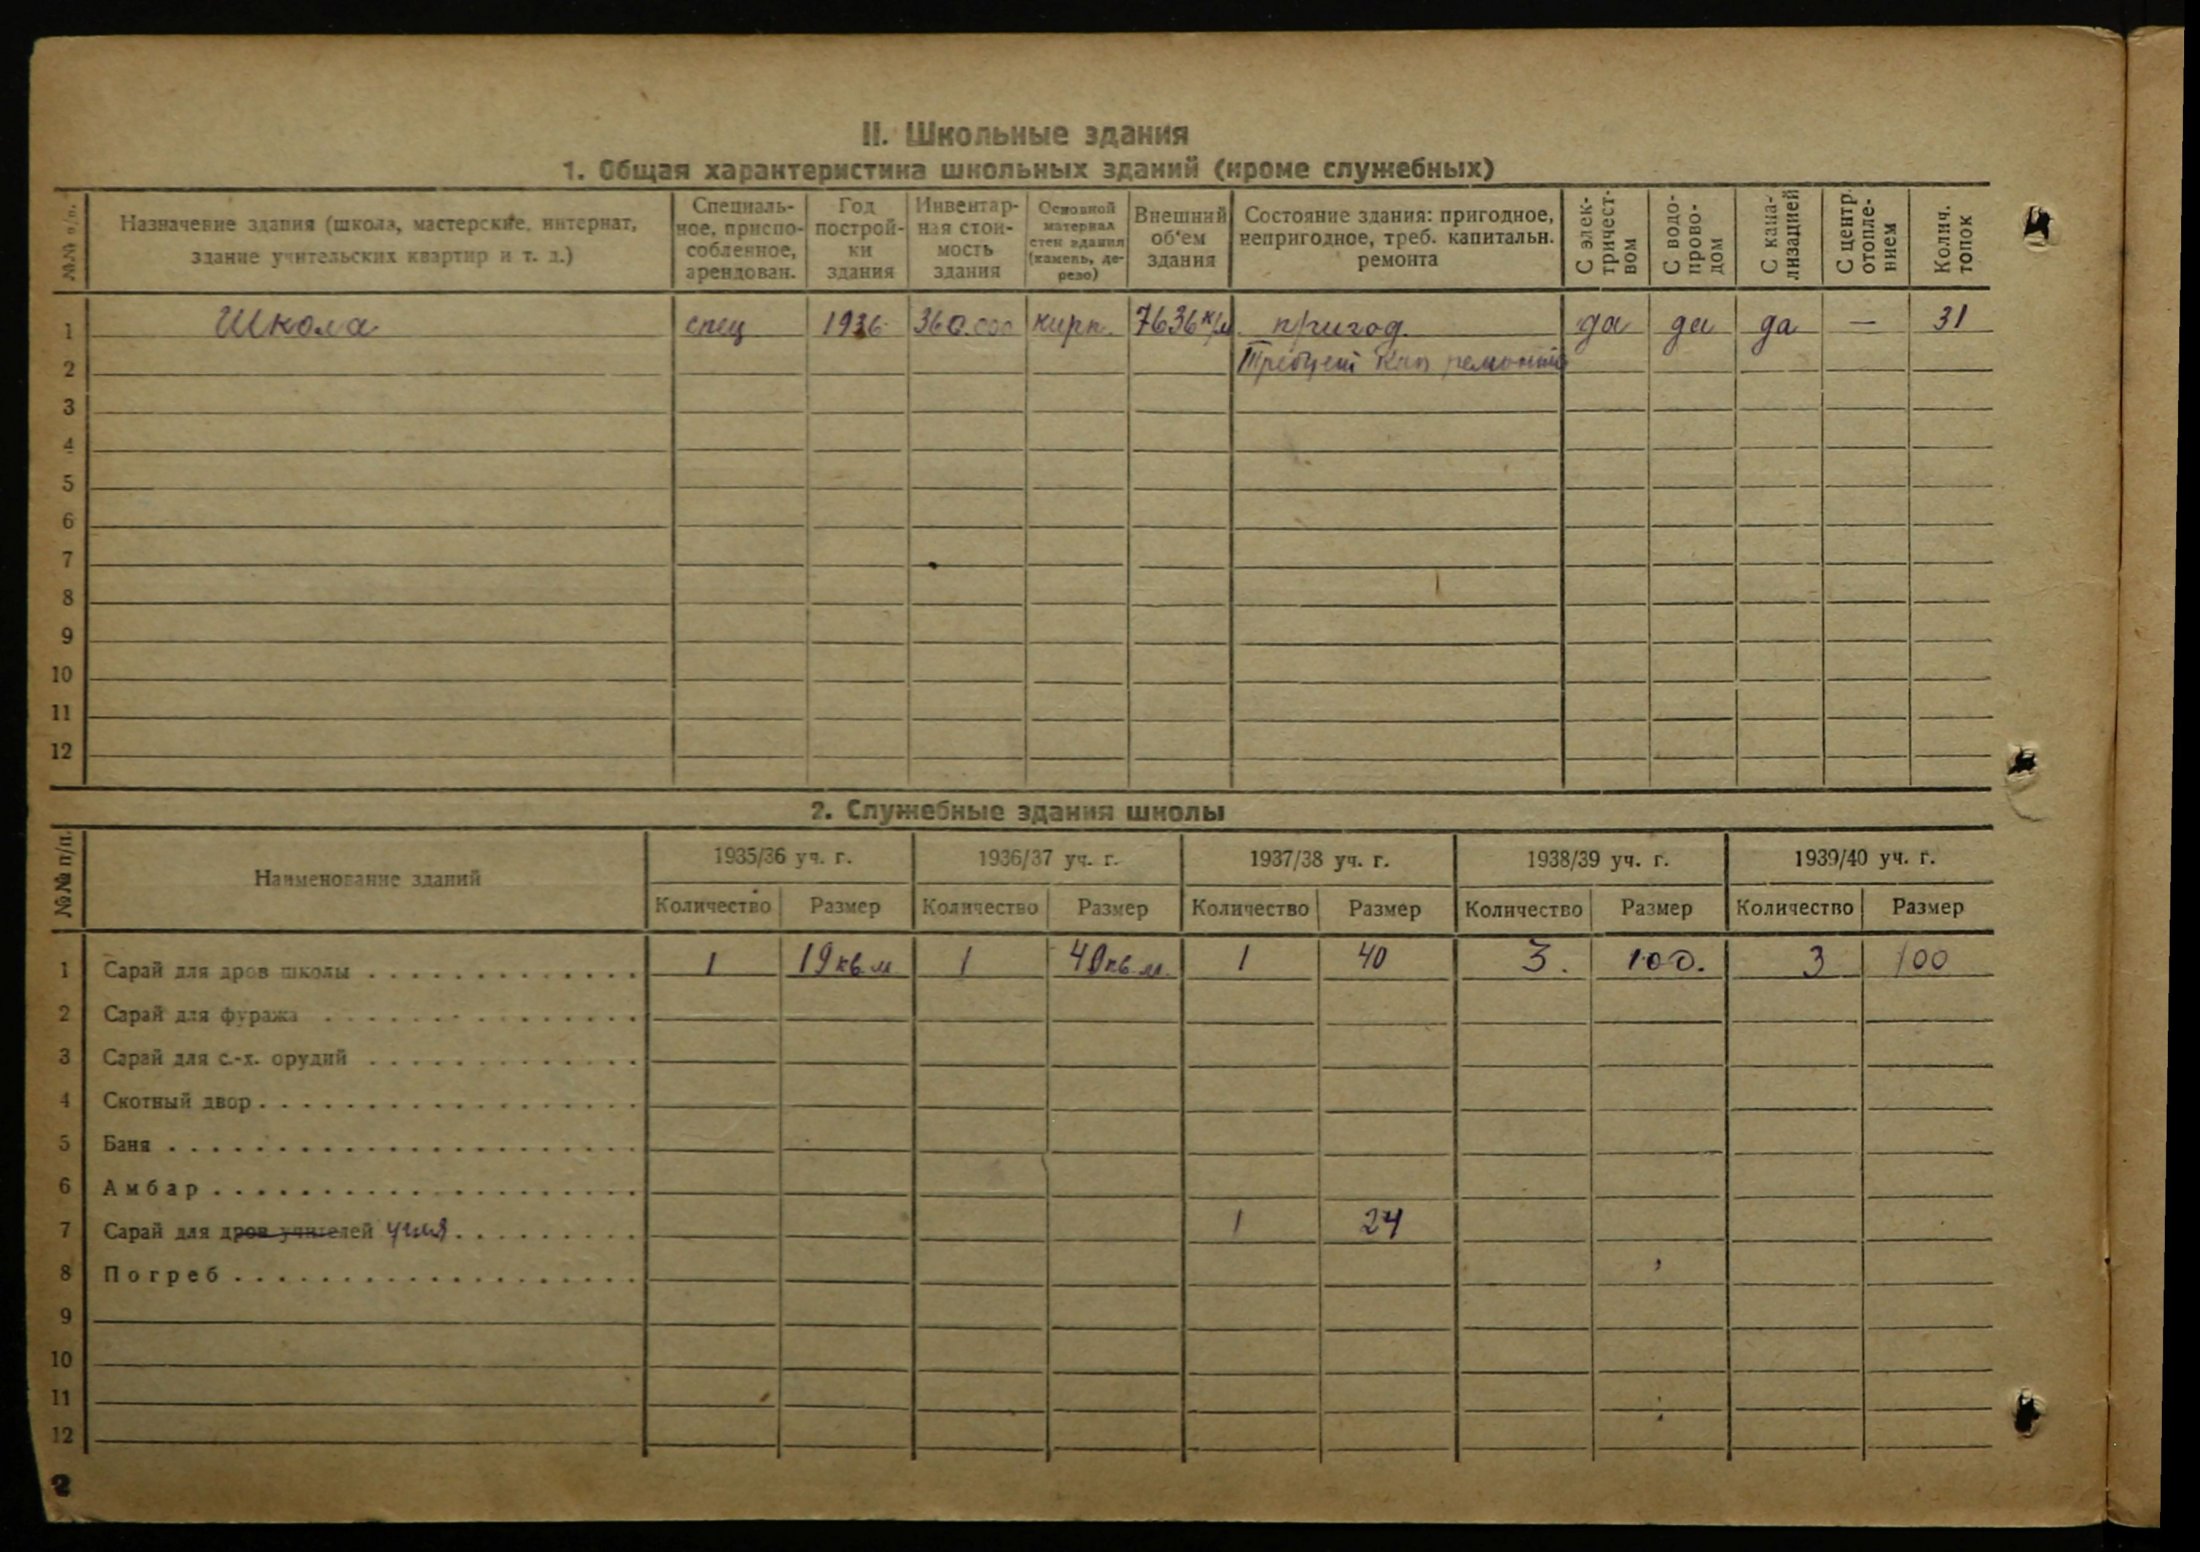 II. Школьные здания
1. Общая характеристика школьных зданий (кроме служебных)
№№ п/п.
Назначение здания (школа, мастерские, интернат,
здание учительских квартир и т. д.)
Специаль-
ное, приспо-
собленное,
арендован.
Год
построй-
ки
здания
Инвентар-
ная стои-
мость
здания
Основной
материал
стен здания
(камень, де-
рево)
Внешний
об'ем
здания
Состояние здания: пригодное,
непригодное, треб. капитальн.
ремонта
С элек-
тричест-
вом
С водо-
прово-
дом
С кана-
лизацией
С центр.
отопле-
нием
Колич.
топок
1 Школа спец 1936 360.000 кирп. 7636 к/м пригод. да да да — 31
2 Требует кап ремонта
3
4
5
6
7
8
9
10
11
12
2. Служебные здания школы
№№ п/п.
Наименование зданий
1935/36 уч. г. 1936/37 уч. г. 1937/38 уч. г. 1938/39 уч. г. 1939/40 уч. г.
Количество Размер Количество Размер Количество Размер Количество Размер Количество Размер
1 Сарай для дров школы 1 19 кв м 1 40 кв. м. 1 40 3. 100. 3 100
2 Сарай для фуража
3 Сарай для с.-х. орудий
4 Скотный двор
5 Баня
6 Амбар
7 Сарай для дров учителей 1 24
8 Погреб
9
10
11
12
2